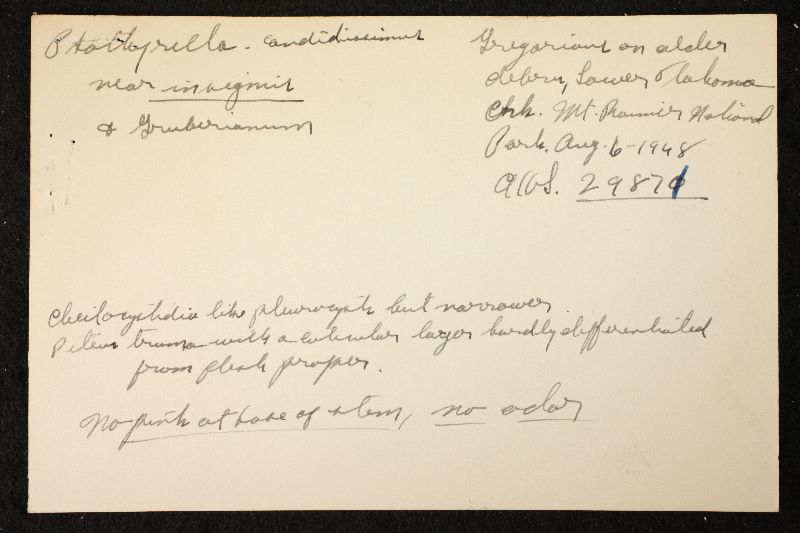 Psathyrella - candidissimus
near insignis
& Gruberianum
Gregarious on alder
debris, Lower Tahoma
Crk. Mt. Rainier National
Park. Aug. 6-1948
AHS. 29871
Cheilocystidia like pleurocysts but narrower
Pileus trama with a cuticular layer hardly differentiated
from flesh proper.
No pink at base of stem, no odor